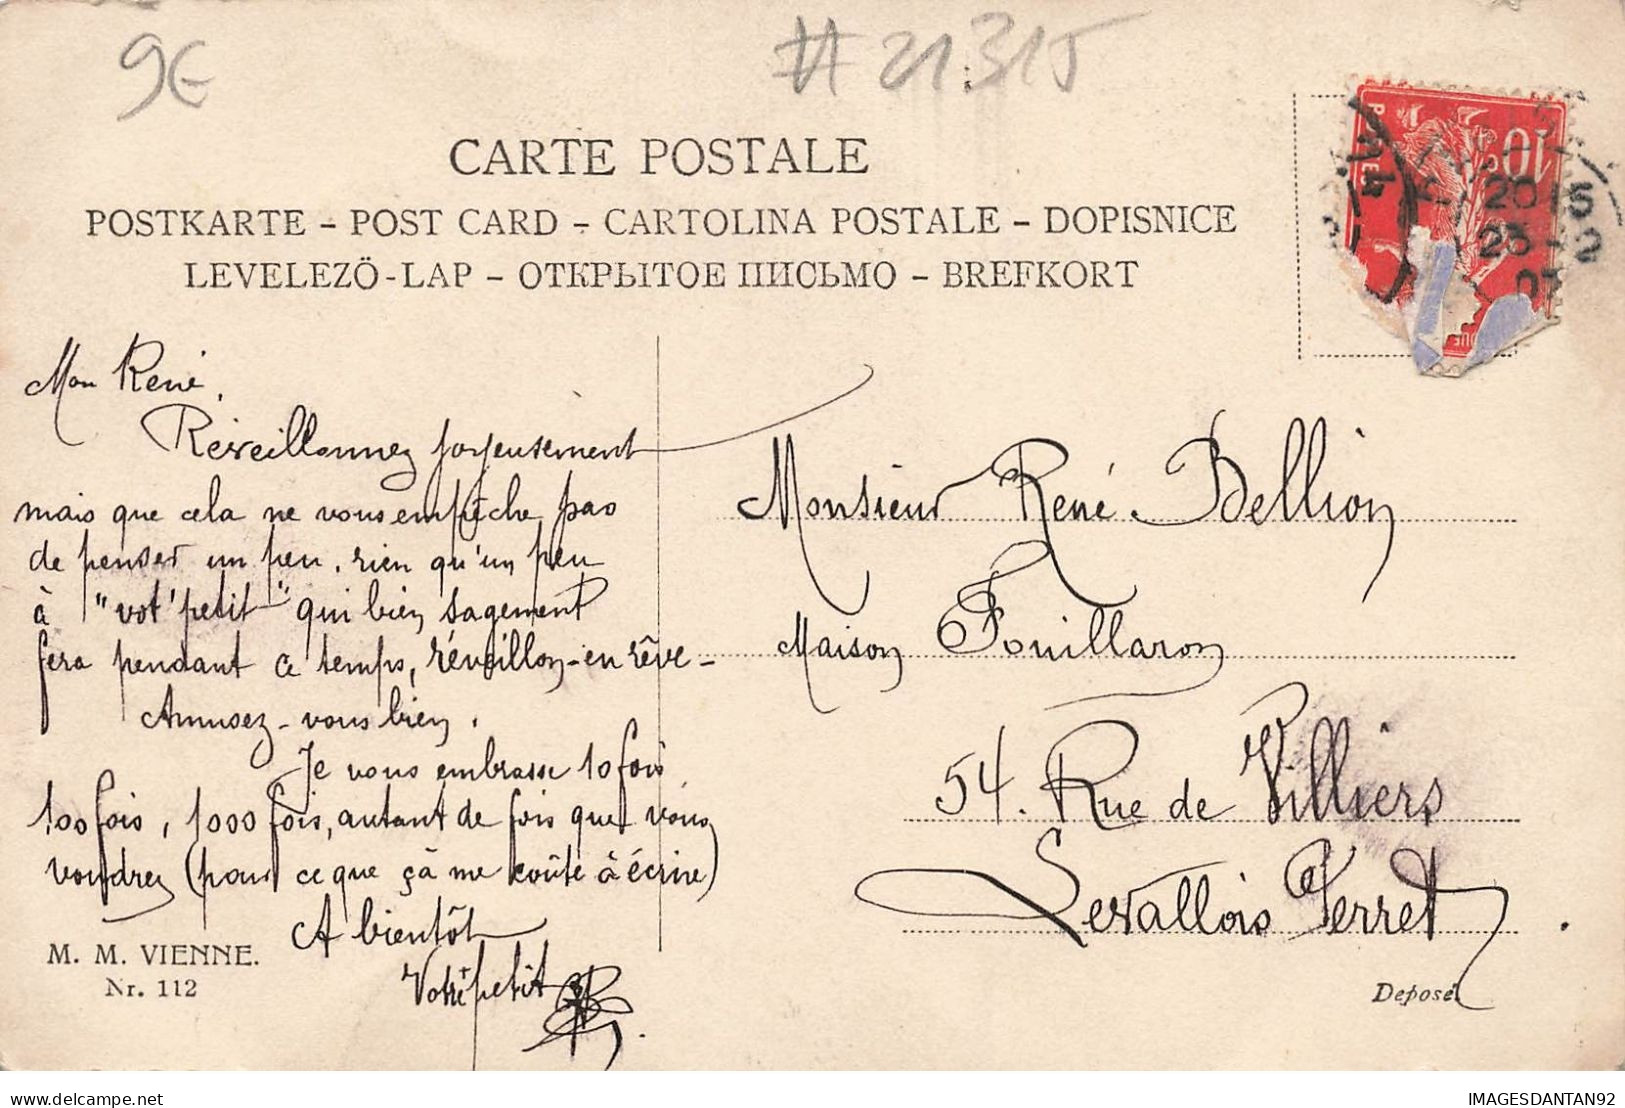 9€
# 21315
CARTE POSTALE
POSTKARTE – POST CARD – CARTOLINA POSTALE – DOPISNICE
LEVELEZÖ-LAP – ОТКРЫТОЕ ПИСЬМО – BREFKORT
10c
20 15
23 - 2
07
Mon René,
Réveillonnez joyeusement
mais que cela ne vous empêche pas
de penser un peu, rien qu'un peu
à "vot' petit" qui bien sagement
fera pendant ce temps, réveillon-en rêve-
Amusez-vous bien.
Je vous embrasse 10 fois
100 fois, 1000 fois, autant de fois que vous
voudrez (pour ce que çà me coûte à écrire)
A bientôt
Votre petit
Monsieur René Bellion
Maison Fouillaron
54. Rue de Villiers
Levallois Perret.
M. M. VIENNE.
Nr. 112
Deposé.
delcampe.net
IMAGESDANTAN92